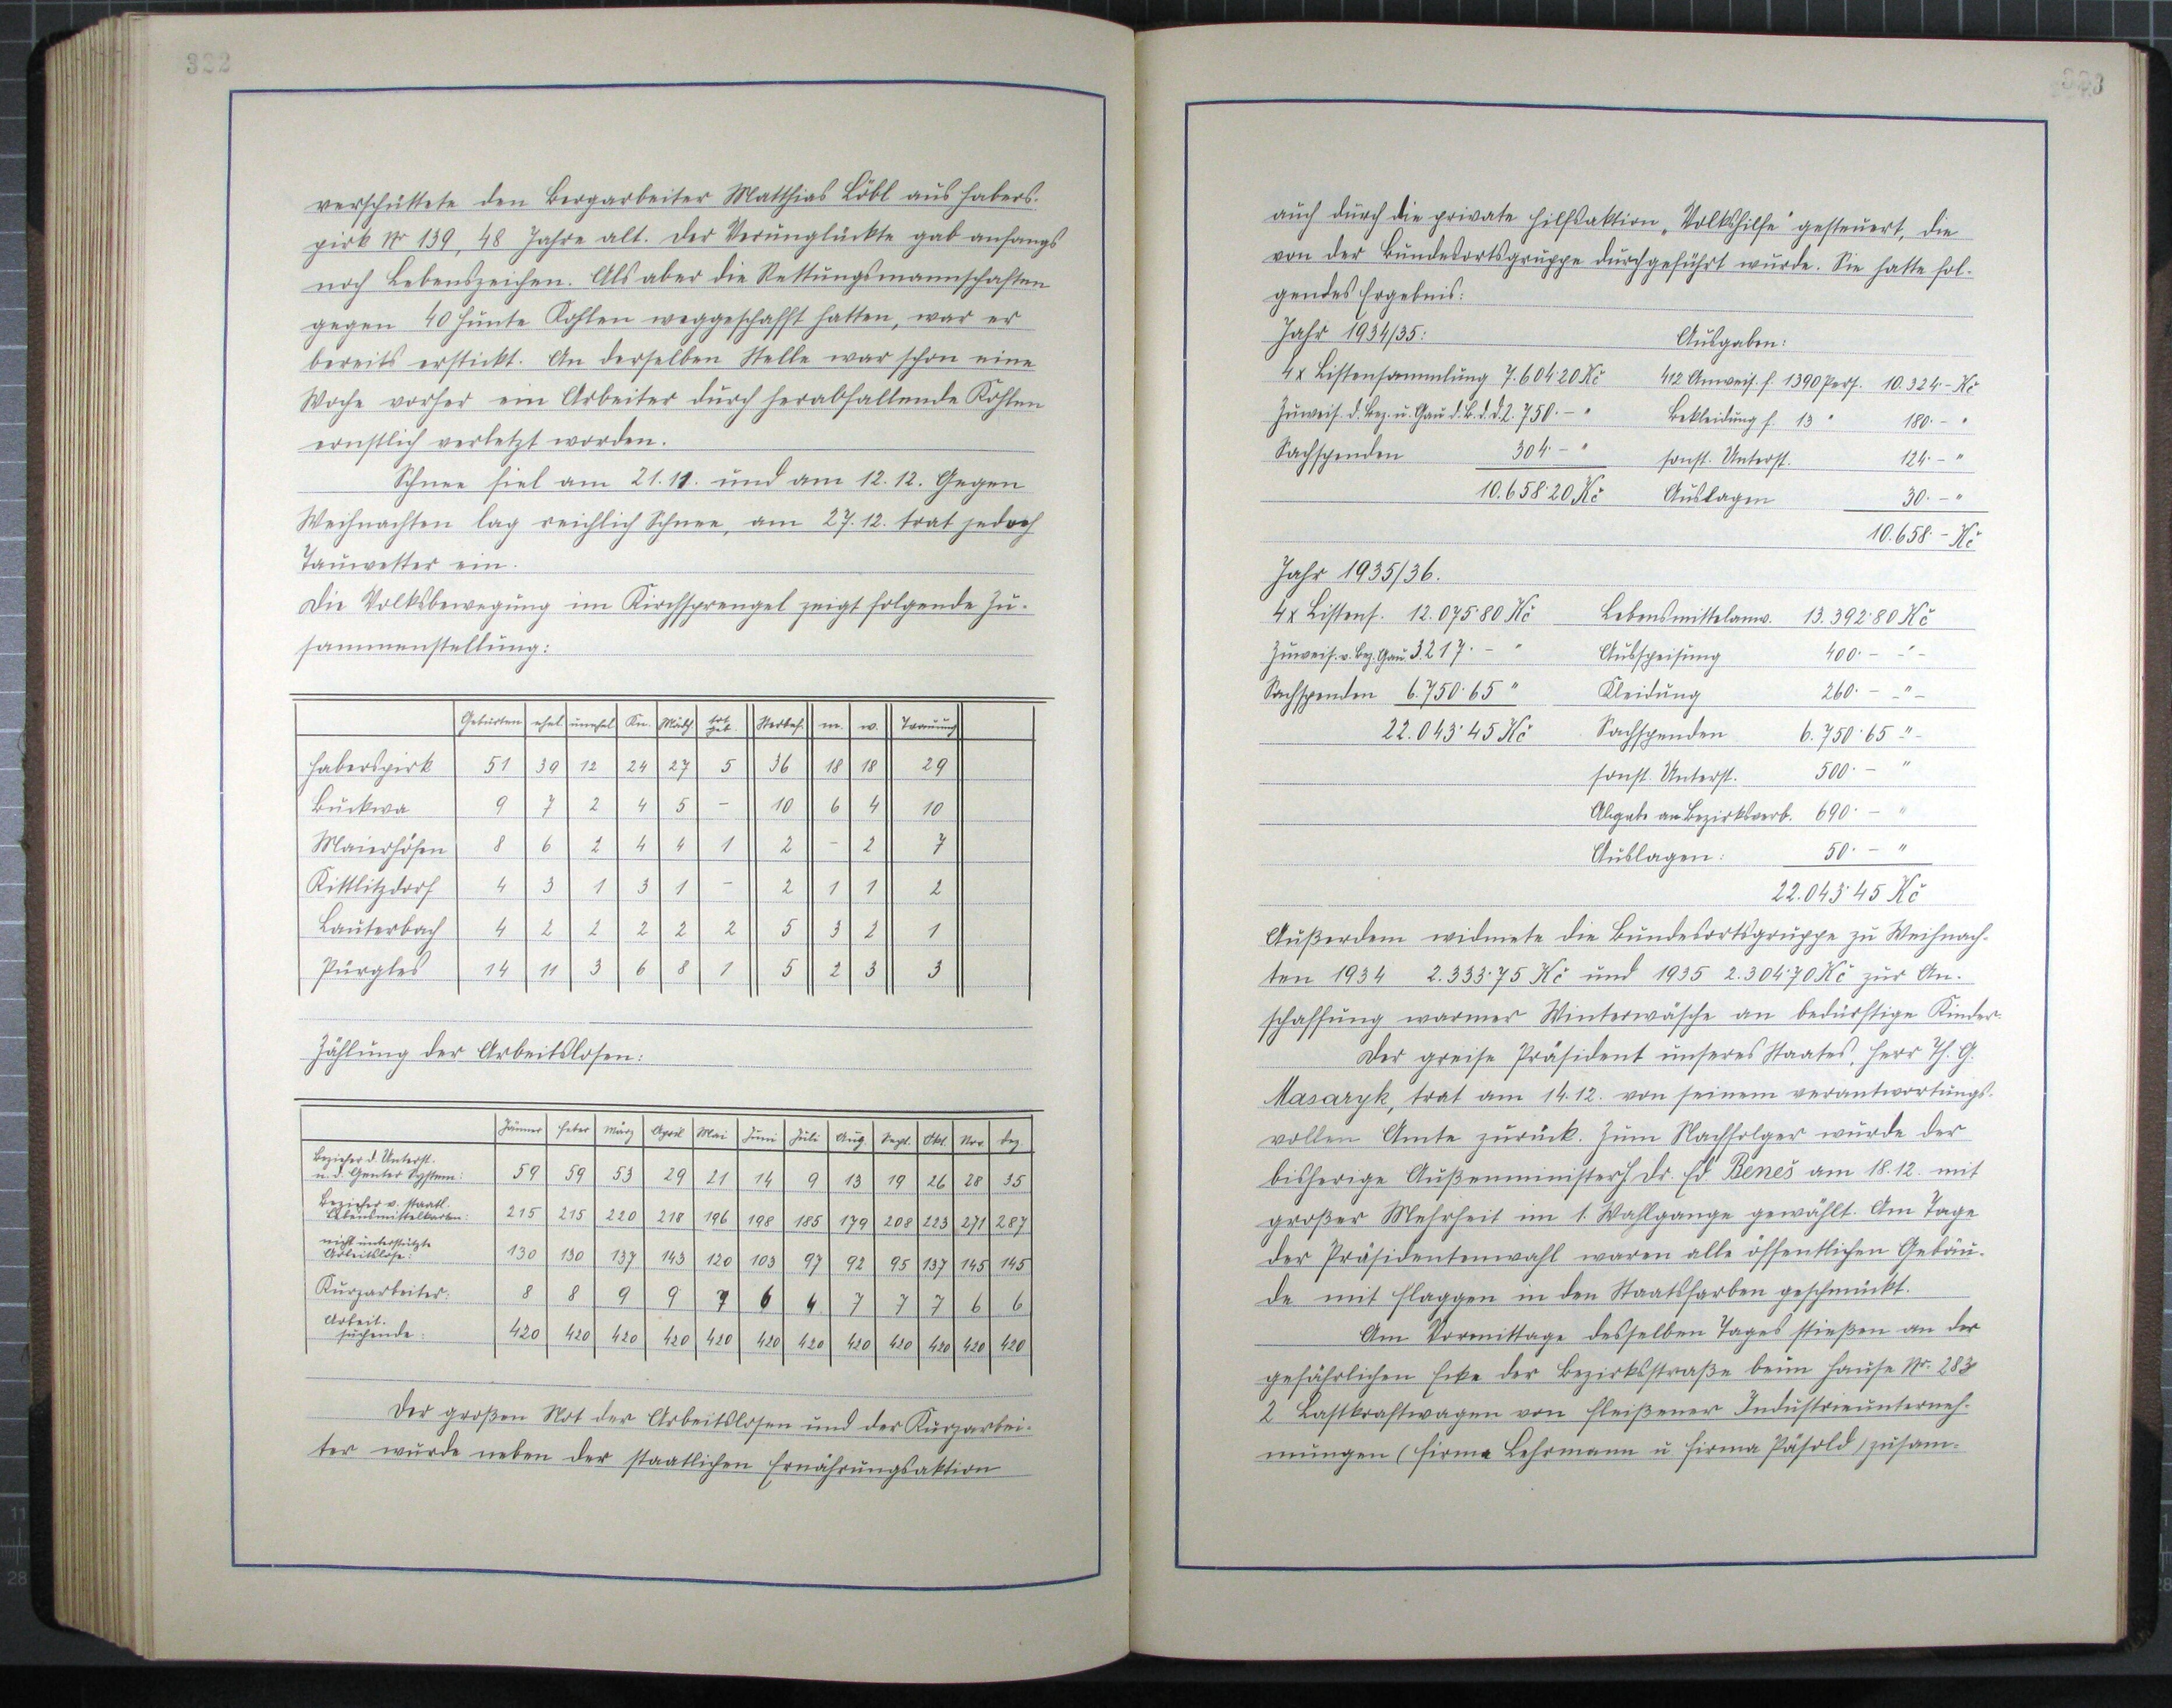 322
verschüttete den Bergarbeiter Matthias Löbl aus Habers-
pirk Nr 139, 48 Jahre alt. Der Verunglückte gab anfangs
noch Lebenszeichen. Als aber die Rettungsmannschaften
gegen 40 Hunte Kohlen weggeschafft hatten, war er
bereits erstickt. An derselben Stelle war schon eine
Woche vorher ein Arbeiter durch herabfallende Kohlen
ernstlich verletzt worden.
Schnee fiel am 21.11. und am 12.12. Gegen
Weihnachten lag reichlich Schnee, am 27.12. trat jedoch
Tauwetter ein.
Die Volksbewegung im Kirchsprengel zeigt folgende Zu-
sammenstellung:
Geburten ehel unehel Kn. Mädch. tot geb. Sterbef. m. w. Trauung
Haberspirk 51 39 12 24 27 5 36 18 18 29
Buckwa 9 7 2 4 5 - 10 6 4 10
Maierhöfen 8 6 2 4 4 1 2 - 2 7
Kittlitzdorf 4 3 1 3 1 - 2 1 1 2
Lauterbach 4 2 2 2 2 2 5 3 2 1
Pürgles 14 11 3 6 8 1 5 2 3 3
Zählung der Arbeitslosen:
Jänner Feber März April Mai Juni Juli Aug. Sept. Okt. Nov. Dez.
Bezieher d. Unterst.
n. d. Genter System: 59 59 53 29 21 14 9 13 19 26 28 35
Bezieher v. staatl.
Lebensmittelkarten: 215 215 220 218 196 198 185 179 208 223 271 287
nicht unterstützte
Arbeitslose: 130 130 137 143 120 103 97 92 95 137 145 145
Kurzarbeiter: 8 8 9 9 7 6 4 7 7 7 6 6
Arbeit-
suchende: 420 420 420 420 420 420 420 420 420 420 420 420
Der großen Not der Arbeitslosen und der Kurzarbei-
ter wurde neben der staatlichen Ernährungsaktion
323
auch durch die private Hilfsaktion „Volkshilfe" gesteuert, die
von der Bundesortsgruppe durchgeführt wurde. Sie hatte fol-
gendes Ergebnis:
Jahr 1934/35: Ausgaben:
4x Listensammlung 7.604·20 Kč 412 Anweis. f. 1390 Pers. 10.324·- Kč
Zuweis. d. Bez. u. Gau d. B. d. D. 2.750·- " Bekleidung f. 13 " 180·- "
Sachspenden 304·- " sonst. Unterst. 124·- "
10.658·20 Kč Auslagen 30·- "
10.658·- Kč
Jahr 1935/36.
4x Listens. 12.075·80 Kč Lebensmittelanw. 13.392·80 Kč
Zuweis. v. Bez. Gau 3217·- " Ausspeisung 400·- -"-
Sachspenden 6.750·65 " Kleidung 260·- -"-
22.043·45 Kč Sachspenden 6.750·65 -"-
sonst. Unterst. 500·- "
Abgabe an Bezirksverb. 690·- "
Auslagen: 50·- "
22.043·45 Kč
Außerdem widmete die Bundesortsgruppe zu Weihnach-
ten 1934 2.333·75 Kč und 1935 2.304·70 Kč zur An-
schaffung warmer Winterwäsche an bedürftige Kinder.
Der greise Präsident unseres Staates, Herr Th. G.
Masaryk, trat am 14.12. von seinem verantwortungs-
vollen Amte zurück. Zum Nachfolger wurde der
bisherige Außenminister H. Dr. Ed. Beneš am 18.12. mit
großer Mehrheit im 1. Wahlgange gewählt. Am Tage
der Präsidentenwahl waren alle öffentlichen Gebäu-
de mit Flaggen in den Staatsfarben geschmückt.
Am Vormittage desselben Tages stießen an der
gefährlichen Ecke der Bezirksstraße beim Hause Nr. 283
2 Lastkraftwagen von Fleißener Industrieunterneh-
mungen (Firma Lehrmann u Firma Päsold) zusam-